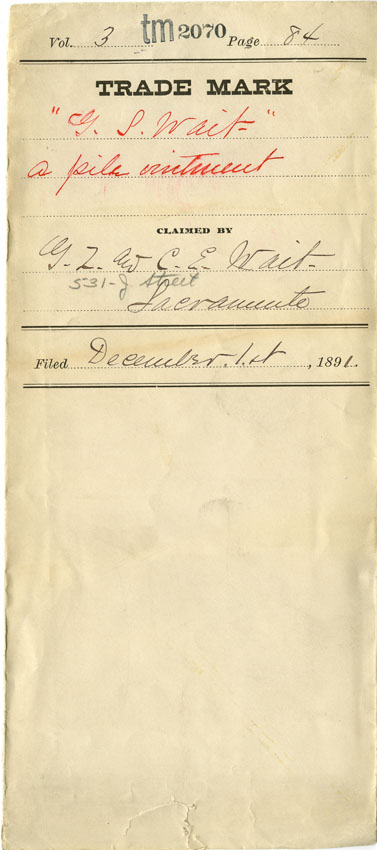 Vol. 3 tm 2070 Page 84
TRADE MARK
"G. S. Wait"
a pile ointment
CLAIMED BY
G. Z. and C. E. Wait
531- J Street
Sacramento
Filed December. 1st, 1891.